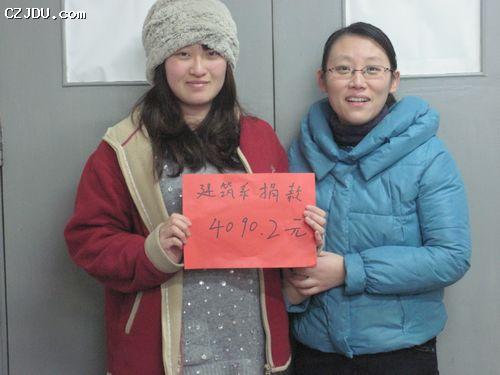 CZJDU.com
建筑系捐款
4090.2元